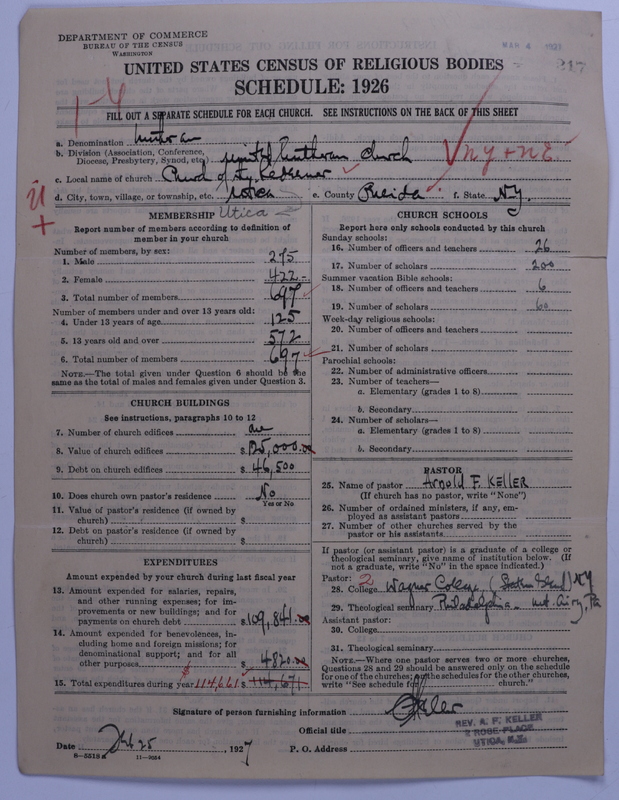 DEPARTMENT OF COMMERCE
BUREAU OF THE CENSUS
WASHINGTON
MAR 4 1927
317
UNITED STATES CENSUS OF RELIGIOUS BODIES
SCHEDULE: 1926
1-4
FILL OUT A SEPARATE SCHEDULE FOR EACH CHURCH. SEE INSTRUCTIONS ON THE BACK OF THIS SHEET
a. Denomination Lutheran
b. Division (Association, Conference, Diocese, Presbytery, Synod, etc.) United Lutheran Church NY + NE
c. Local name of church Church of the Redeemer
d. City, town, village, or township, etc. Utica e. County Oneida f. State N.Y.
Utica
MEMBERSHIP
Report number of members according to definition of
member in your church
Number of members, by sex:
1. Male 275
2. Female 422
3. Total number of members 697
Number of members under and over 13 years old:
4. Under 13 years of age 125
5. 13 years old and over 572
6. Total number of members 697
NOTE.—The total given under Question 6 should be the
same as the total of males and females given under Question 3.
CHURCH BUILDINGS
See instructions, paragraphs 10 to 12
7. Number of church edifices one
8. Value of church edifices $125,000.00
9. Debt on church edifices $46,500
10. Does church own pastor's residence No
Yes or No
11. Value of pastor's residence (if owned by
church) $
12. Debt on pastor's residence (if owned by
church) $
EXPENDITURES
Amount expended by your church during last fiscal year
13. Amount expended for salaries, repairs,
and other running expenses; for im-
provements or new buildings; and for
payments on church debt $109,841.00
14. Amount expended for benevolences, in-
cluding home and foreign missions; for
denominational support; and for all
other purposes $4820.00
15. Total expenditures during year 114,661 $114,671
CHURCH SCHOOLS
Report here only schools conducted by this church
Sunday schools:
16. Number of officers and teachers 26
17. Number of scholars 200
Summer vacation Bible schools:
18. Number of officers and teachers 6
19. Number of scholars 60
Week-day religious schools:
20. Number of officers and teachers
21. Number of scholars
Parochial schools:
22. Number of administrative officers
23. Number of teachers—
a. Elementary (grades 1 to 8)
b. Secondary
24. Number of scholars—
a. Elementary (grades 1 to 8)
b. Secondary
PASTOR
25. Name of pastor Arnold F. Keller
(If church has no pastor, write "None")
26. Number of ordained ministers, if any, em-
ployed as assistant pastors
27. Number of other churches served by the
pastor or his assistants
If pastor (or assistant pastor) is a graduate of a college or
theological seminary, give name of institution below. (If
not a graduate, write "No" in the space indicated.)
Pastor: 2
28. College Wagner College (Staten Island) NY
29. Theological seminary Philadelphia - Mt. Airy, Pa
Assistant pastor:
30. College
31. Theological seminary
NOTE.—Where one pastor serves two or more churches,
Questions 28 and 29 should be answered only on the schedule
for one of the churches; on the schedules for the other churches,
write "See schedule for church."
Signature of person furnishing information AF Keller
Official title
REV. A. F. KELLER
2 ROSE PLACE
UTICA, N.Y.
Date Feb 25, 1927 P. O. Address
8-551S 11-9034